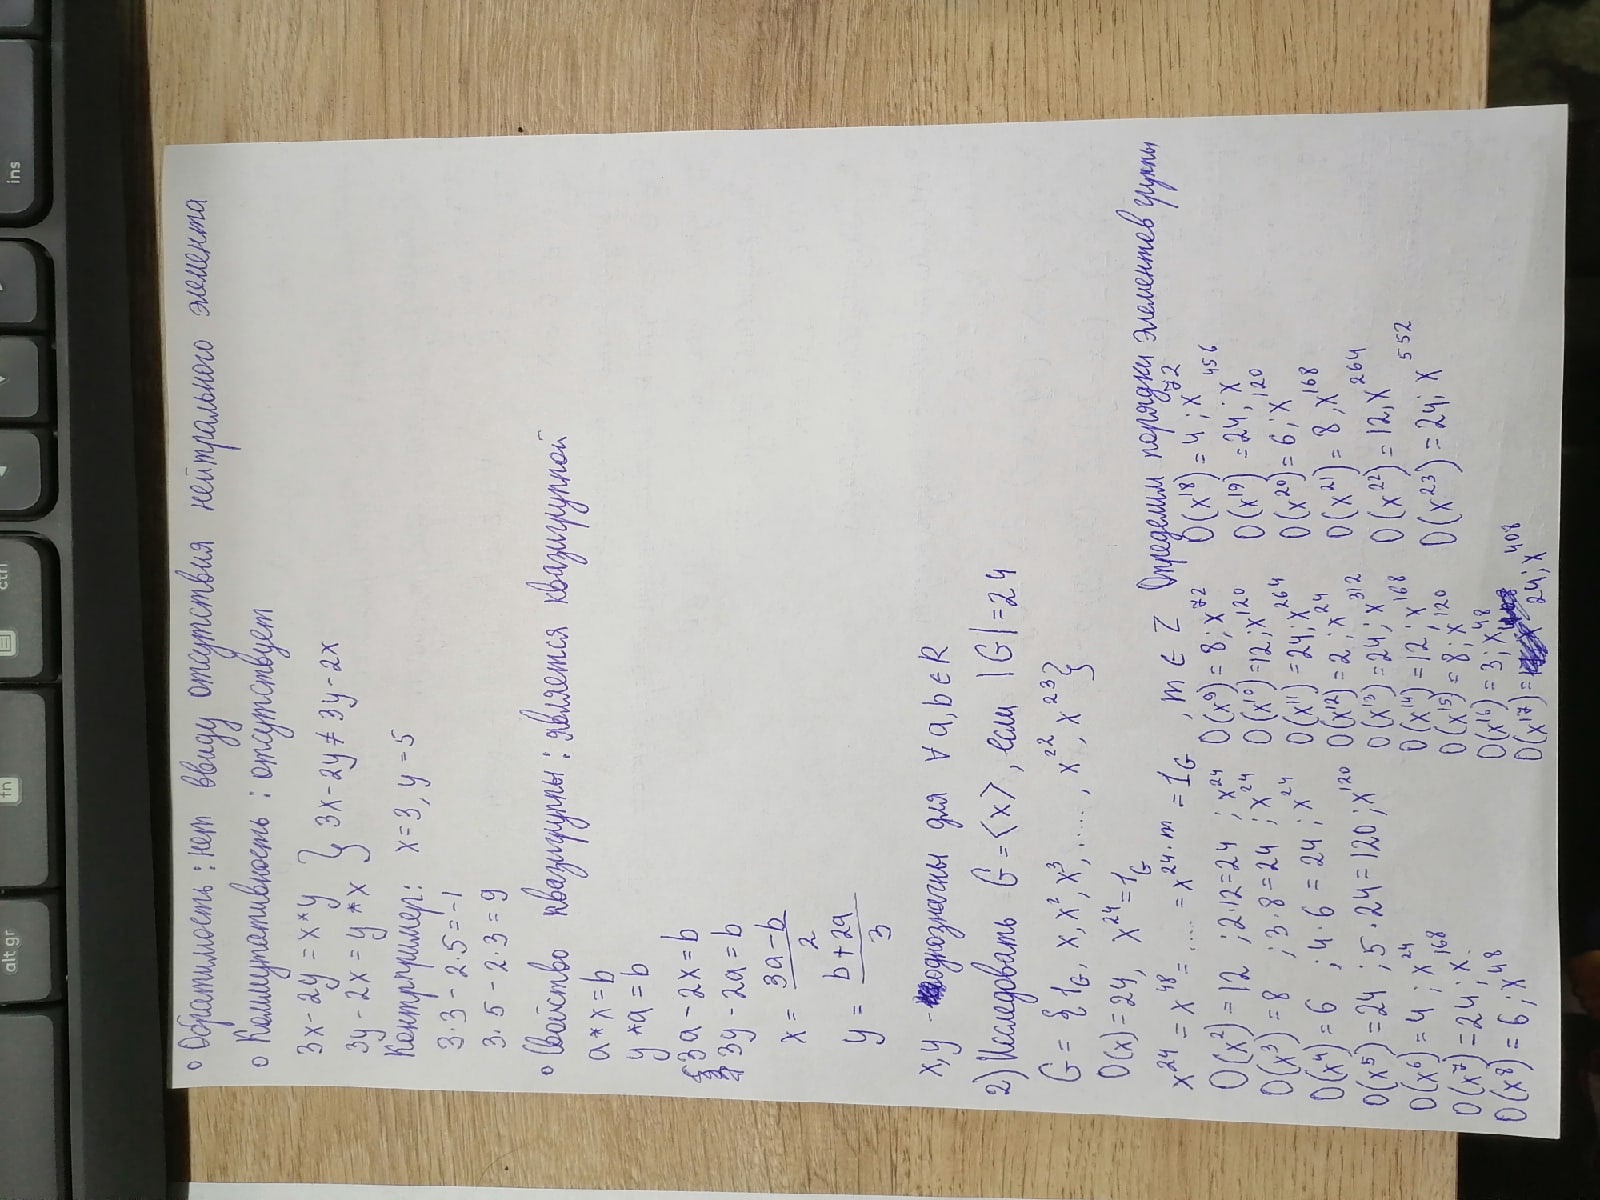 alt gr
fn
ctrl
ins
Обратимость: нет ввиду отсутствия нейтрального элемента
Коммутативность: отсутствует
3x-2y = x*y
3y-2x = y*x } 3x-2y ≠ 3y-2x
Контрпример: x=3, y=5
3·3 - 2·5 = -1
3·5 - 2·3 = 9
Свойство квазигруппы: является квазигруппой
a*x=b
y*a=b
3a-2x=b
3y-2a=b
x = (3a-b)/2
y = (b+2a)/3
x,y - однозначны для ∀ a,b ∈ R
2) Исследовать G = <x>, если |G| = 24
G = {1_G, x, x², x³, ....., x²², x²³}
O(x)=24, x²⁴=1_G
Определим порядки элементов группы
x²⁴ = x⁴⁸ = .... = x^(24·m) = 1_G, m ∈ Z
O(x²) = 12 ; 2·12=24 ; x²⁴
O(x³) = 8 ; 3·8=24 ; x²⁴
O(x⁴) = 6 ; 4·6 = 24 ; x²⁴
O(x⁵) = 24 ; 5·24=120 ; x¹²⁰
O(x⁶) = 4 ; x²⁴
O(x⁷) = 24 ; x¹⁶⁸
O(x⁸) = 6 ; x⁴⁸
O(x⁹) = 8 ; x⁷²
O(x¹⁰) = 12 ; x¹²⁰
O(x¹¹) = 24 ; x²⁶⁴
O(x¹²) = 2 ; x²⁴
O(x¹³) = 24 ; x³¹²
O(x¹⁴) = 12 ; x¹⁶⁸
O(x¹⁵) = 8 ; x¹²⁰
O(x¹⁶) = 3 ; x⁴⁸
O(x¹⁷) = 24 ; x⁴⁰⁸
O(x¹⁸) = 4 ; x⁷²
O(x¹⁹) = 24 ; x⁴⁵⁶
O(x²⁰) = 6 ; x¹²⁰
O(x²¹) = 8, x¹⁶⁸
O(x²²) = 12, x²⁶⁴
O(x²³) = 24 ; x⁵⁵²